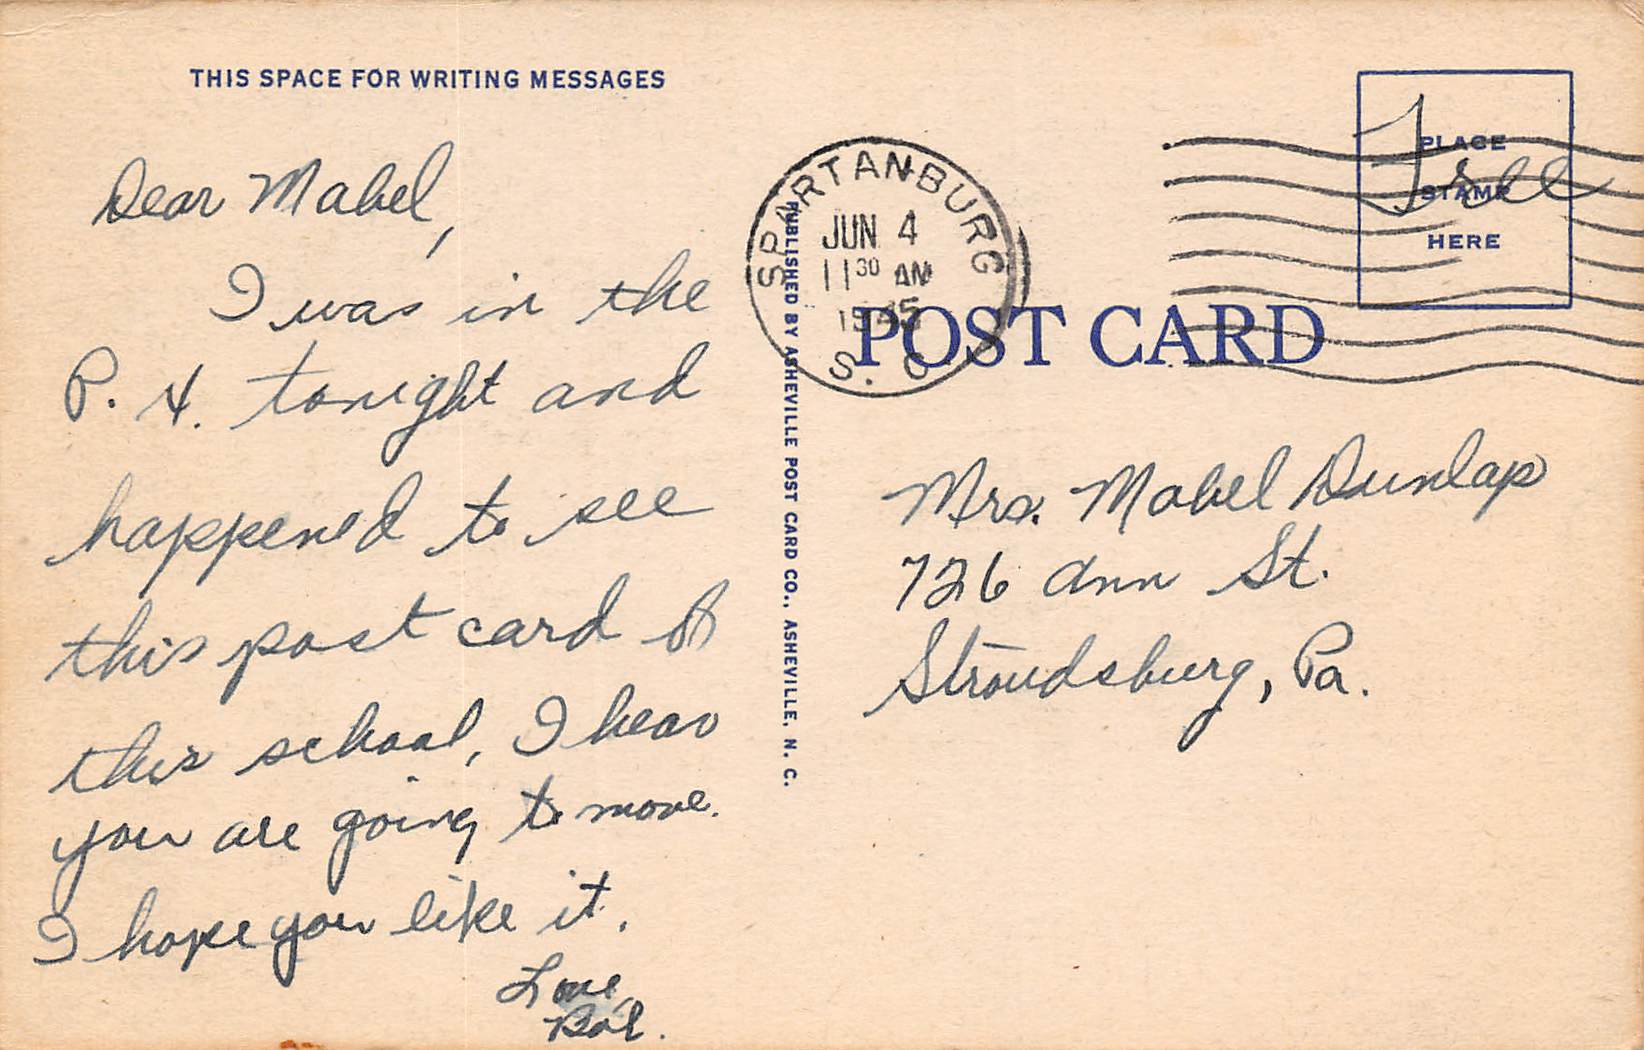 THIS SPACE FOR WRITING MESSAGES
Dear Mabel,
I was in the
P. X. tonight and
happened to see
this post card of
this school, I hear
you are going to move.
I hope you like it.
Love,
Bob.
PUBLISHED BY ASHEVILLE POST CARD CO., ASHEVILLE, N. C.
SPARTANBURG
JUN 4
11 30 AM
1945
S. C
POST CARD
PLACE
STAMP
HERE
Free
Mrs. Mabel Dunlap
726 Ann St.
Stroudsburg, Pa.